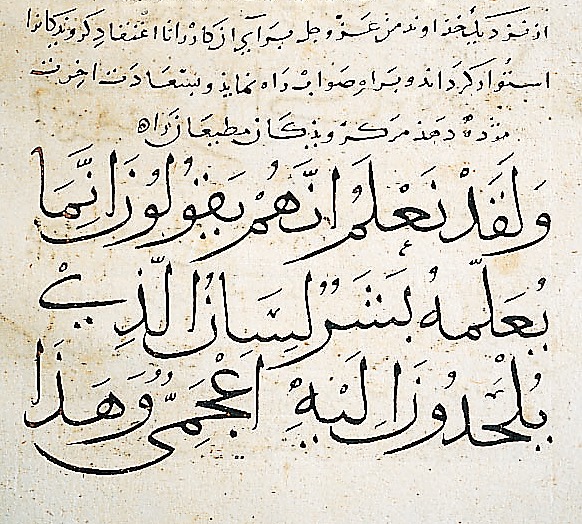 از نزدیک خذاوند من عزّ و جل برای ان کاذرانا اعتقاد کرونذکانرا
استوار کرداند و براه صواب راه نماید و بسعادت اخرت
مژده دهذ مر کرویذکان مطیعان راه
وَلَقَدْ نَعْلَمُ اَنَّهُمْ يَقُولُونَ اِنَّمَا
يُعَلِّمُهُ بَشَرٌ لِسَانُ الَّذِي
يُلْحِدُونَ اِلَيْهِ اَعْجَمِيٌّ وَهَذَا